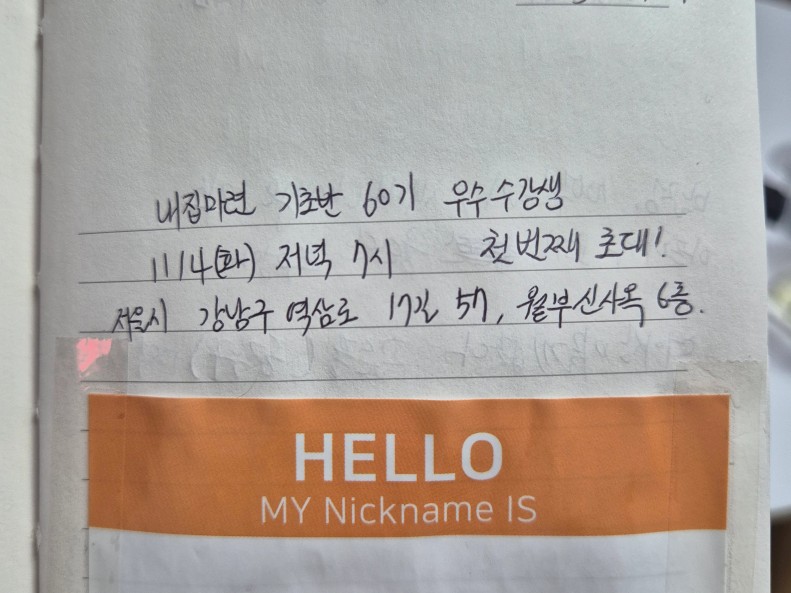 내집마련 기초반 60기 우수수강생
11/4(화) 저녁 7시 첫번째 초대!
서울시 강남구 역삼로 17길 57, 월부신사옥 6층.
HELLO
MY Nickname IS